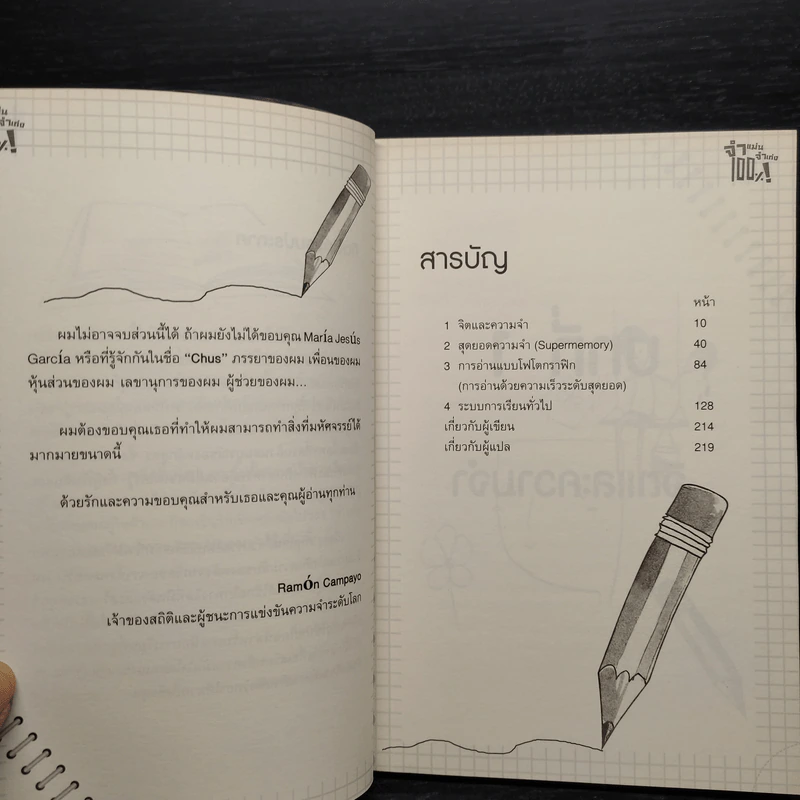 ผมไม่อาจจบส่วนนี้ได้ ถ้าผมยังไม่ได้ขอบคุณ María Jesús
García หรือที่รู้จักกันในชื่อ “Chus” ภรรยาของผม เพื่อนของผม
หุ้นส่วนของผม เลขานุการของผม ผู้ช่วยของผม...
ผมต้องขอบคุณเธอที่ทำให้ผมสามารถทำสิ่งที่มหัศจรรย์ได้
มากมายขนาดนี้
ด้วยรักและความขอบคุณสำหรับเธอและคุณผู้อ่านทุกท่าน
Ramón Campayo
เจ้าของสถิติและผู้ชนะการแข่งขันความจำระดับโลก
จำแม่น
จำเก่ง
100%!
สารบัญ
หน้า
1 จิตและความจำ 10
2 สุดยอดความจำ (Supermemory) 40
3 การอ่านแบบโฟโตกราฟิก 84
(การอ่านด้วยความเร็วระดับสุดยอด)
4 ระบบการเรียนทั่วไป 128
เกี่ยวกับผู้เขียน 214
เกี่ยวกับผู้แปล 219